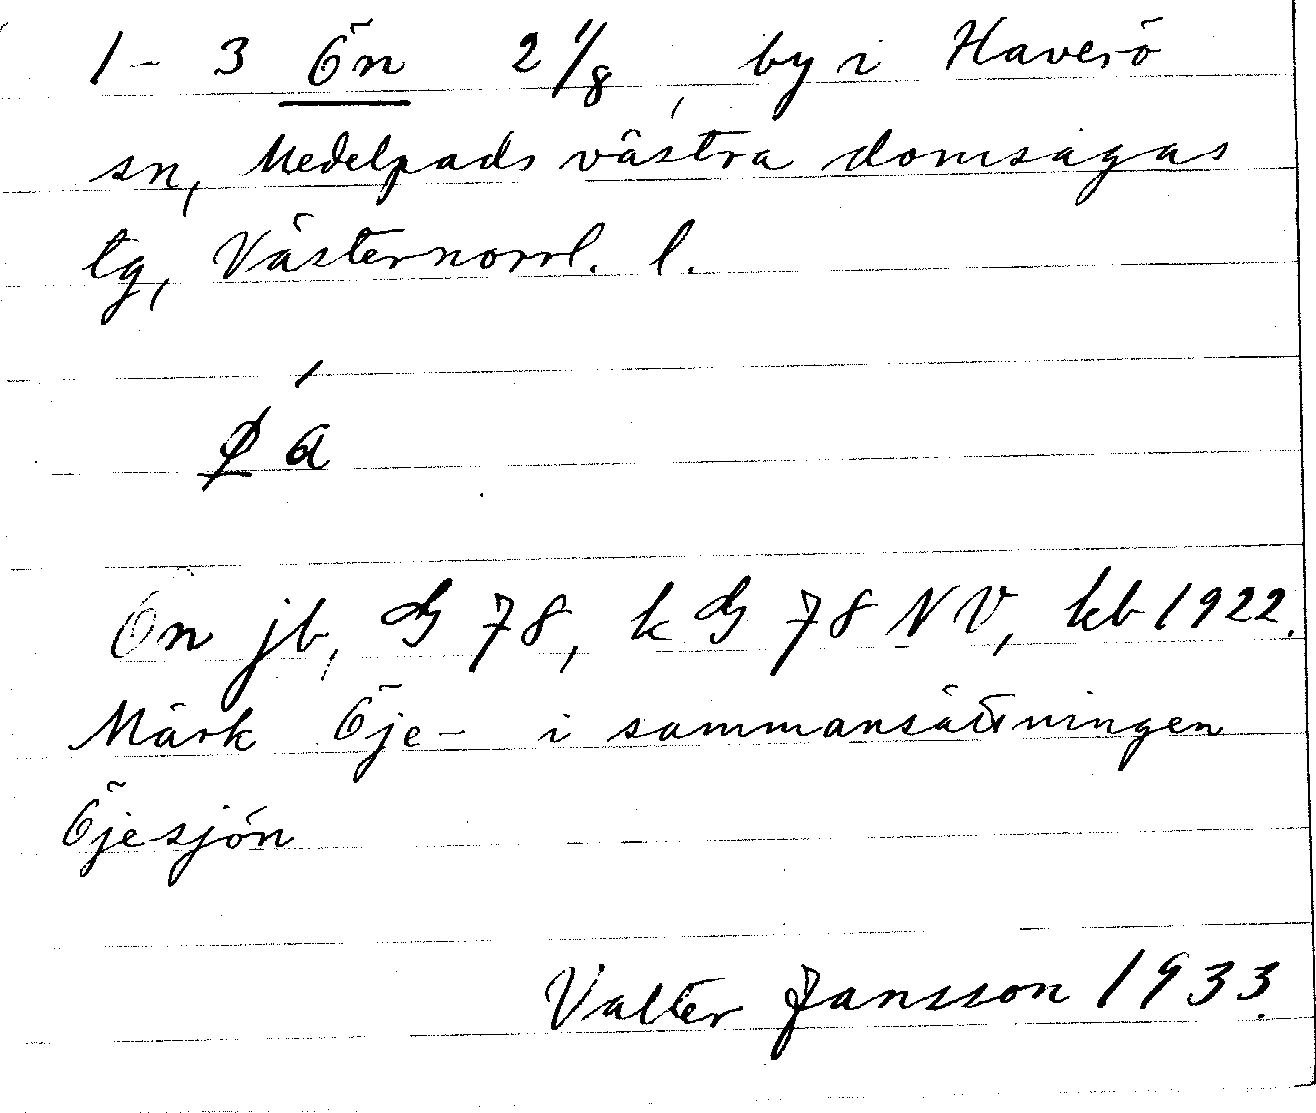 1-3 Ön 2 1/8, by i Haverö
sn, Medelpads västra domsagas
tg, Västernorrl. l.
Ön jb, G 78, k G 78 NV, kb 1922.
Märk Öje- i sammansättningen
Öjesjön
Valter Jansson 1933.